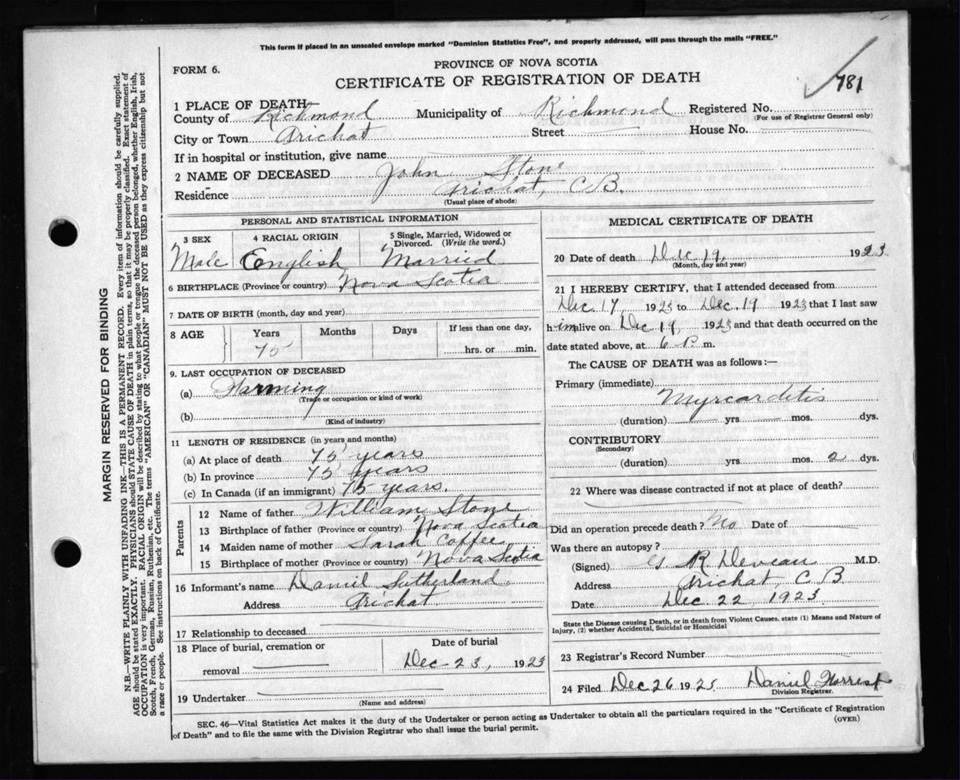 This form if placed in an unsealed envelope marked "Dominion Statistics Free", and properly addressed, will pass through the mails "FREE."
FORM 6.
PROVINCE OF NOVA SCOTIA
CERTIFICATE OF REGISTRATION OF DEATH
781
1 PLACE OF DEATH
County of Richmond Municipality of Richmond Registered No.
(For use of Registrar General only)
City or Town Arichat Street House No.
If in hospital or institution, give name
2 NAME OF DECEASED John Stone
Residence Arichat, C B.
(Usual place of abode)
PERSONAL AND STATISTICAL INFORMATION
3 SEX 4 RACIAL ORIGIN 5 Single, Married, Widowed or Divorced. (Write the word.)
Male English Married
6 BIRTHPLACE (Province or country) Nova Scotia
7 DATE OF BIRTH (month, day and year)
8 AGE Years Months Days If less than one day,
75 hrs. or min.
9. LAST OCCUPATION OF DECEASED
(a) Farming
(Trade or occupation or kind of work)
(b)
(Kind of industry)
11 LENGTH OF RESIDENCE (in years and months)
(a) At place of death 75 years
(b) In province 75 years
(c) In Canada (if an immigrant) 75 years.
Parents
12 Name of father William Stone
13 Birthplace of father (Province or country) Nova Scotia
14 Maiden name of mother Sarah Coffee
15 Birthplace of mother (Province or country) Nova Scotia
16 Informant's name Daniel Sutherland
Address Arichat
17 Relationship to deceased
18 Place of burial, cremation or removal Date of burial
Dec 23, 1923
19 Undertaker
(Name and address)
MEDICAL CERTIFICATE OF DEATH
20 Date of death Dec 19, 1923
(Month, day and year)
21 I HEREBY CERTIFY, that I attended deceased from
Dec. 17 1923 to Dec. 19 1923 that I last saw
him alive on Dec 19, 1923 and that death occurred on the
date stated above, at 6 P. m.
The CAUSE OF DEATH was as follows:—
Primary (immediate)
Myrcarditis
(duration) yrs mos. dys.
CONTRIBUTORY
(Secondary)
(duration) yrs. mos. 2 dys.
22 Where was disease contracted if not at place of death?
Did an operation precede death? No Date of
Was there an autopsy?
(Signed) R Deveau M.D.
Address Arichat, C B
Date Dec. 22, 1923
State the Disease causing Death, or in death from Violent Causes, state (1) Means and Nature of Injury, (2) whether Accidental, Suicidal or Homicidal
23 Registrar's Record Number
24 Filed Dec 26 1925 Daniel
Division Registrar.
SEC. 46—Vital Statistics Act makes it the duty of the Undertaker or person acting as Undertaker to obtain all the particulars required in the "Certificate of Registration
of Death" and to file the same with the Division Registrar who shall issue the burial permit.
(OVER)
MARGIN RESERVED FOR BINDING
N.B.—WRITE PLAINLY WITH UNFADING INK—THIS IS A PERMANENT RECORD. Every item of information should be carefully supplied.
AGE should be stated EXACTLY. PHYSICIANS should STATE CAUSE OF DEATH in plain terms, so that it may be properly classified. Exact statement of
OCCUPATION is very important. RACIAL ORIGIN will be described by stating to what people or tongue the deceased person belonged, whether English, Irish,
Scotch, French, German, Russian, Ruthenian, etc. The terms "AMERICAN" OR "CANADIAN" MUST NOT BE USED as they express citizenship but not
a race or people. See instructions on back of Certificate.